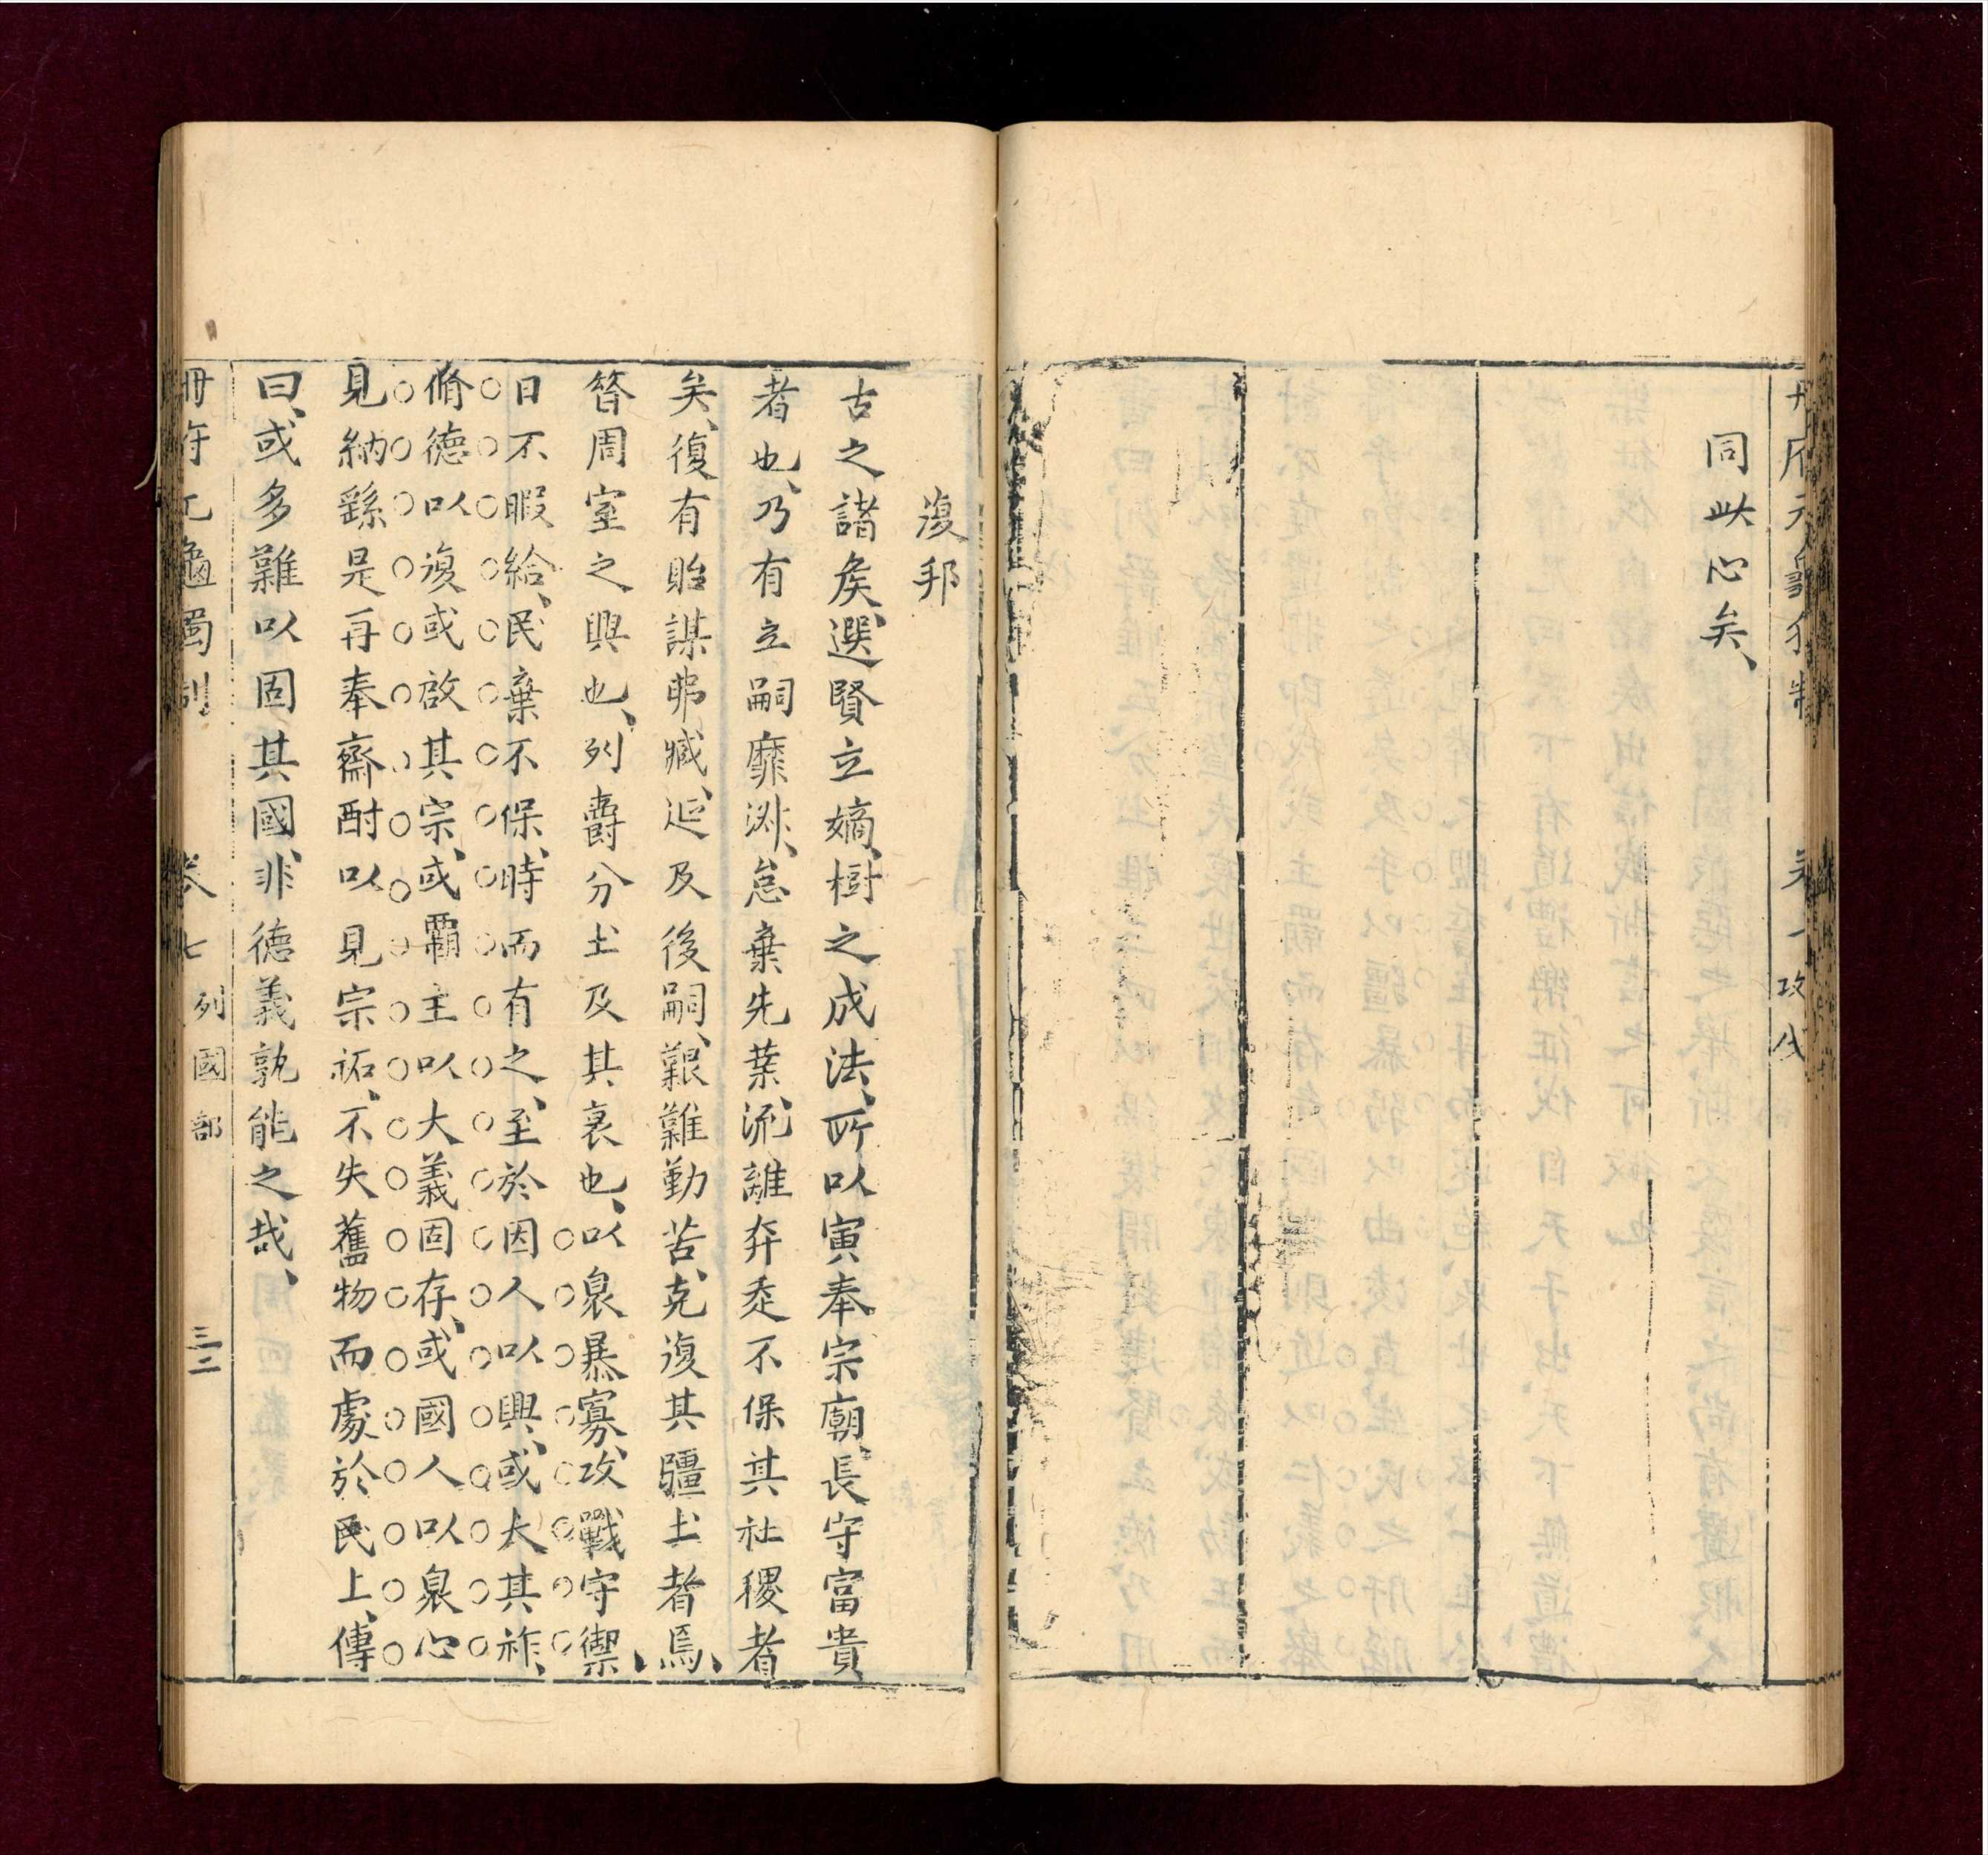 同此心矣
復邦
古之諸矦選賢立嫡樹之成法所以寅奉宗廟長守富貴
者也乃有立嗣靡淑怠棄先業流離奔走不保其社稷者
矣復有貽謀弗臧延及後嗣艱難勤苦克復其疆土者焉
昝周室之興也列爵分土及其衰也以衆暴寡攻戰守禦
日不暇給民棄不保時而有之至於因人以興或大其祚
脩德以復或啟其宗或霸主以大義固存或國人以衆心
見納繇是再奉齋酎以見宗祏不失舊物而處於民上傳
曰或多難以固其國非德義孰能之哉
卷七 列國部 三二